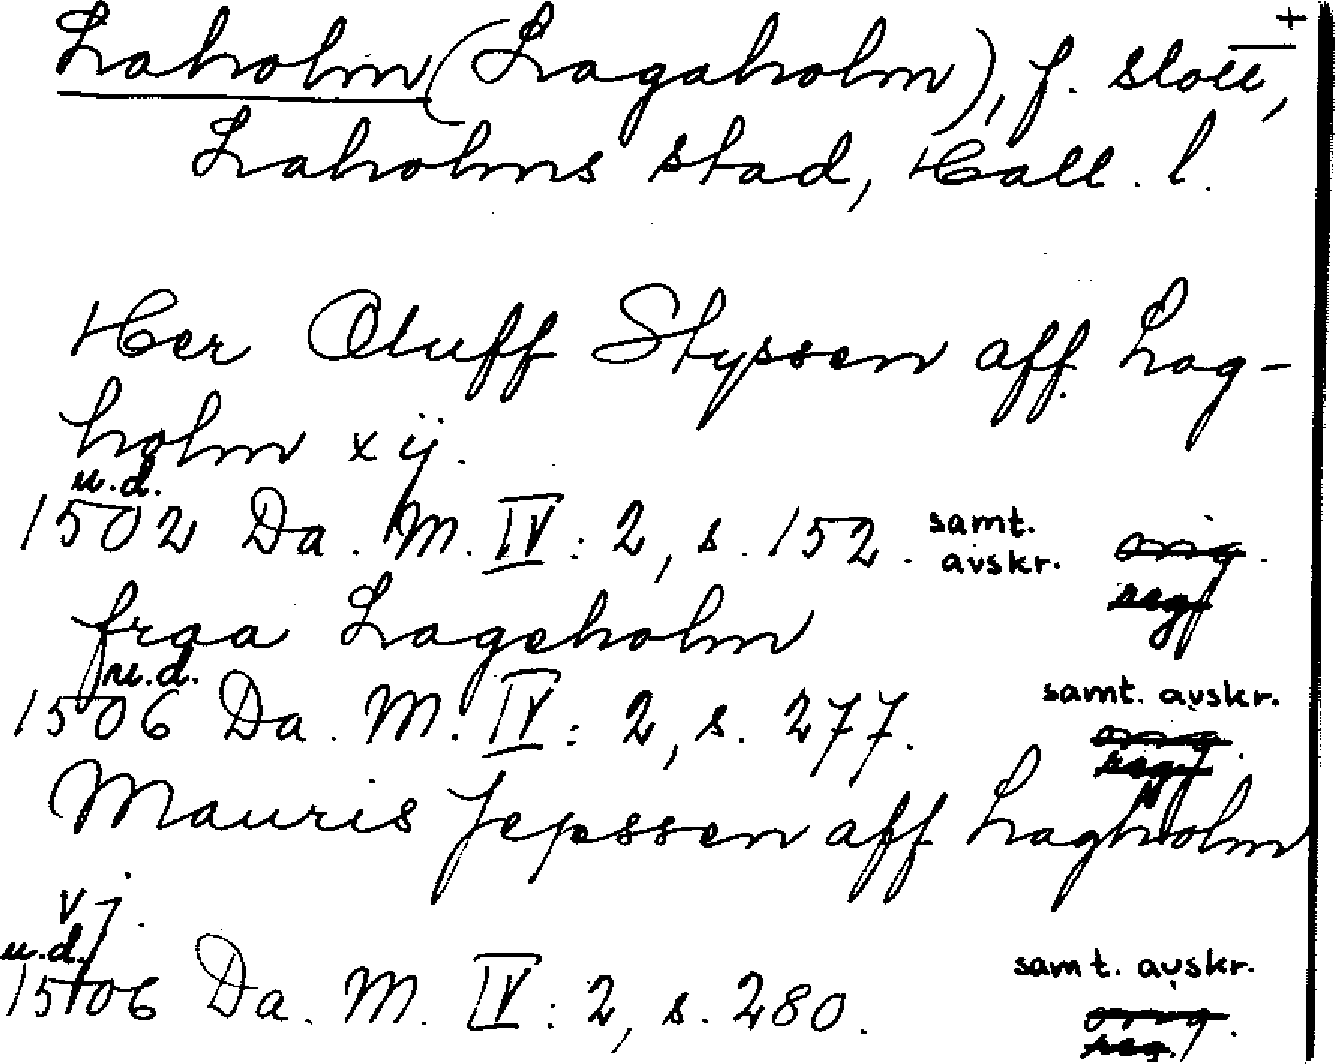 +
Laholm (Lagaholm), f. slott,
Laholms stad, Hall. l.
Her Oluff Styssen aff Lag-
holm xij.
u.d.
1502 Da. M. IV: 2, s. 152. samt. avskr. orig. reg.
fraa Lageholm
u.d.
1506 Da. M. IV: 2, s. 277. samt. avskr. orig. reg.
Mauris Jepssen aff Lagholm
vj.
u.d.
1506 Da. M. IV: 2, s. 280. samt. avskr. orig. reg.